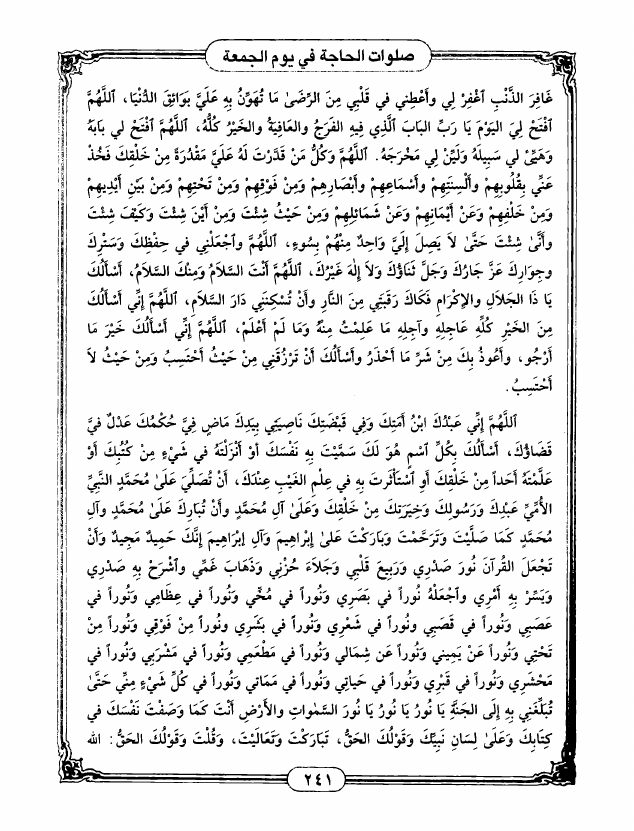 صلوات الحاجة في يوم الجمعة
غَافِرَ الذَّنْبِ ٱغْفِرْ لِي وأَعْطِني في قَلْبِي مِنَ الرِّضَىٰ مَا تُهَوِّنُ بِهِ عَلَيَّ بَوائِقَ الدُّنْيَا، ٱللَّهُمَّ
ٱفْتَحْ لِيَ اليَوْمَ يَا رَبِّ البَابَ ٱلَّذِي فِيهِ الفَرَجُ والعَافِيَةُ والخَيْرُ كُلُّهُ، ٱللَّهُمَّ ٱفْتَحْ لي بَابَهُ
وَهَيِّئْ لي سَبِيلَهُ وَلَيِّنْ لِي مَخْرَجَهُ. ٱللَّهُمَّ وَكُلُّ مَنْ قَدَّرْتَ لَهُ عَلَيَّ مَقْدُرَةً مِنْ خَلْقِكَ فَخُذْ
عَنِّي بِقُلُوبِهِمْ وأَلْسِنَتِهِمْ وأَسْمَاعِهِمْ وأَبْصَارِهِمْ وَمِنْ فَوْقِهِمْ وَمِنْ تَحْتِهِمْ وَمِنْ بَيْنِ أَيْدِيهِمْ
وَمِنْ خَلْفِهِمْ وَعَنْ أَيْمَانِهِمْ وَعَنْ شَمَائِلِهِمْ وَمِنْ حَيْثُ شِئْتَ وَمِنْ أَيْنَ شِئْتَ وَكَيْفَ شِئْتَ
وأَنَّى شِئْتَ حَتَّىٰ لاَ يَصِلَ إِلَيَّ وَاحِدٌ مِنْهُمْ بِسُوءٍ، ٱللَّهُمَّ وٱجْعَلْنِي في حِفْظِكَ وَسَتْرِكَ
وجِوَارِكَ عَزَّ جَارُكَ وَجَلَّ ثَنَاؤُكَ وَلاَ إِلٰهَ غَيْرُكَ، ٱللَّهُمَّ أَنْتَ السَّلاَمُ وَمِنْكَ السَّلاَمُ، أَسْأَلُكَ
يَا ذَا الجَلاَلِ والإِكْرَامِ فَكَاكَ رَقَبَتِي مِنَ النَّارِ وأَنْ تُسْكِنَنِي دَارَ السَّلاَمِ، ٱللَّهُمَّ إِنِّي أَسْأَلُكَ
مِنَ الخَيْرِ كُلِّهِ عَاجِلِهِ وآجِلِهِ مَا عَلِمْتُ مِنْهُ وَمَا لَمْ أَعْلَمْ، ٱللَّهُمَّ إِنِّي أَسْأَلُكَ خَيْرَ مَا
أَرْجُو، وأَعُوذُ بِكَ مِنْ شَرِّ مَا أَحْذَرُ وأَسْأَلُكَ أَنْ تَرْزُقَنِي مِنْ حَيْثُ أَحْتَسِبُ وَمِنْ حَيْثُ لاَ
أَحْتَسِبُ.
ٱللَّهُمَّ إِنِّي عَبْدُكَ ابْنُ أَمَتِكَ وَفِي قَبْضَتِكَ نَاصِيَتِي بِيَدِكَ مَاضٍ فِيَّ حُكْمُكَ عَدْلٌ فيَّ
قَضَاؤُكَ، أَسْأَلُكَ بِكُلِّ اسْمٍ هُوَ لَكَ سَمَّيْتَ بِهِ نَفْسَكَ أَوْ أَنْزَلْتَهُ في شَيْءٍ مِنْ كُتُبِكَ أَوْ
عَلَّمْتَهُ أَحَداً مِنْ خَلْقِكَ أَوِ ٱسْتَأْثَرتَ بِهِ في عِلْمِ الغَيْبِ عِنْدَكَ، أَنْ تُصَلِّيَ عَلَىٰ مُحَمَّدٍ النَّبِيِّ
الأُمِّيِّ عَبْدِكَ وَرَسُولِكَ وَخِيَرَتِكَ مِنْ خَلْقِكَ وَعَلَىٰ آلِ مُحَمَّدٍ وأَنْ تُبَارِكَ عَلَىٰ مُحَمَّدٍ وآلِ
مُحَمَّدٍ كَمَا صَلَّيْتَ وَتَرَحَّمْتَ وَبَارَكْتَ عَلىٰ إِبْراهِيمَ وَآلِ إِبْرَاهِيمَ إِنَّكَ حَمِيدٌ مَجِيدٌ وَأَنْ
تَجْعَلَ القُرآنَ نُورَ صَدْرِي وَرَبِيعَ قَلْبِي وَجَلاَءَ حُزْنِي وَذَهَابَ غَمِّي وٱشْرَحْ بِهِ صَدْرِي
وَيَسِّرْ بِهِ أَمْرِي وٱجْعَلْهُ نُوراً في بَصَرِي وَنُوراً في مُخِّي وَنُوراً في عِظَامِي وَنُوراً في
عَصَبِي وَنُوراً في قَصَبِي ونُوراً في شَعْرِي وَنُوراً في بَشَرِي ونُوراً مِنْ فَوْقِي وَنُوراً مِنْ
تَحْتِي وَنُوراً عَنْ يَمِينِي وَنُوراً عَن شِمَالِي وَنُوراً في مَطْعَمِي وَنُوراً في مَشْرَبِي وَنُوراً في
مَحْشَرِي وَنُوراً في قَبْرِي وَنُوراً في حَيَاتِي وَنُوراً في مَمَاتي وَنُوراً في كُلِّ شَيْءٍ مِنِّي حَتَّىٰ
تُبَلِّغَنِي بِهِ إِلَى الجَنَّةِ يَا نُورُ يَا نُورُ يَا نُورَ السَّمٰواتِ والأَرْضِ أَنْتَ كَمَا وَصَفْتَ نَفْسَكَ في
كِتَابِكَ وَعَلَىٰ لِسَانِ نَبِيِّكَ وَقَوْلُكَ الحَقُّ، تَبَارَكْتَ وَتَعَالَيْتَ، وَقُلْتَ وَقَوْلُكَ الحَقُّ: الله
٢٤١